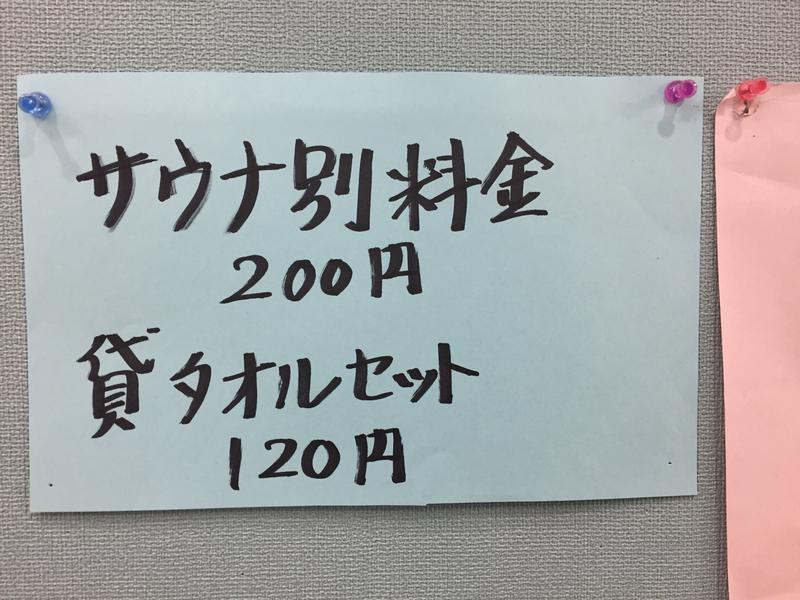 サウナ別料金
200円
貸タオルセット
120円